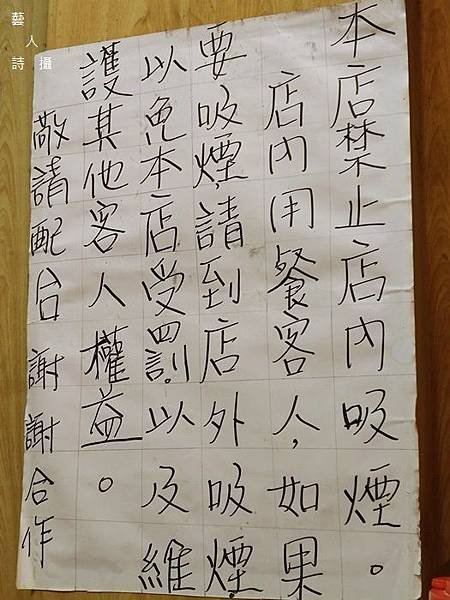 本店禁止店內吸煙。
店內用餐客人，如果
要吸煙，請到店外吸煙
以免本店受罰以及維
護其他客人權益。
敬請配合 謝謝合作
藝人
詩攝